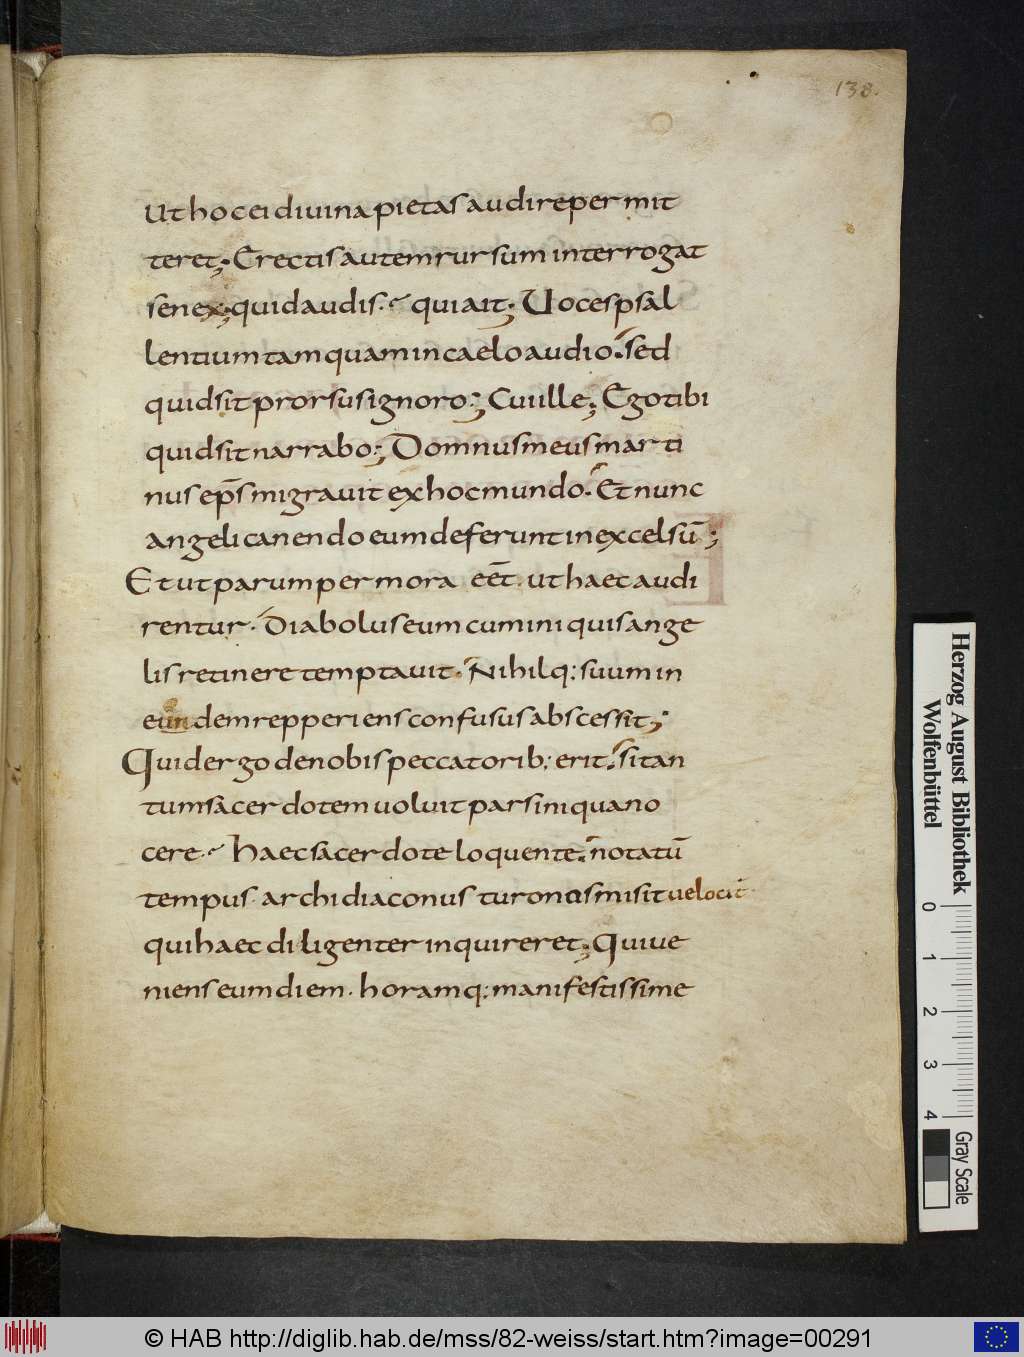 138.
Ut hoc ei diuina pietas audire permit
teret; Erectis autem rursum interrogat
senex; quid audis. qui ait; Uoces psal
lentium tamquam in caelo audio. sed
quid sit prorsus ignoro; Cui ille; Ego tibi
quid sit narrabo; Domnus meus marti
nus ep̄s migrauit ex hoc mundo. Et nunc
angeli canendo eum deferunt in excelsū;
Et ut parumper mora eēt. ut haec audi
rentur. Diabolus eum cum iniquis ange
lis retinere temptauit. Nihilq: suum in
eundem repperiens confusus abscessit;
Quid ergo de nobis peccatorib: erit. si tan
tum sacerdotem uoluit pars iniqua no
cere. Haec sacerdote loquente. notatū
tempus. archidiaconus turoncis misit uelocit̄
qui haec diligenter inquireret; Qui ue
niens eum diem. horamq: manifestissime
Herzog August Bibliothek
Wolfenbüttel
0 1 2 3 4
Gray Scale
© HAB http://diglib.hab.de/mss/82-weiss/start.htm?image=00291